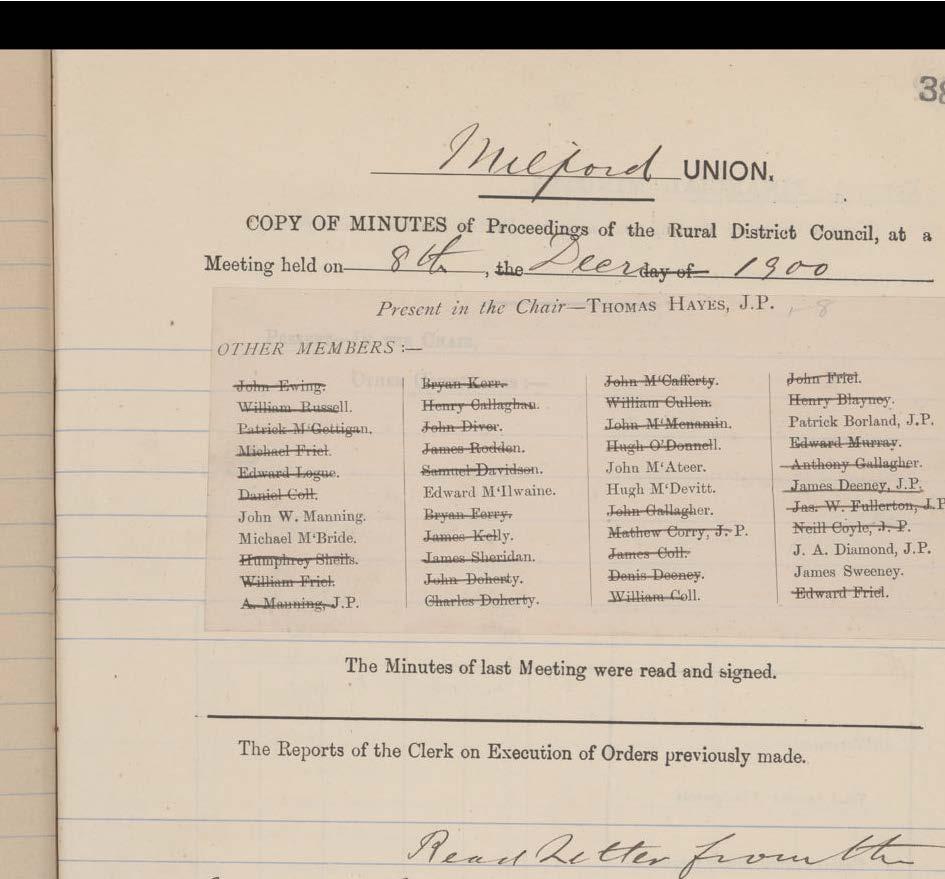 38
Milford UNION.
COPY OF MINUTES of Proceedings of the Rural District Council, at a
Meeting held on 8th, the Decr day of 1900
Present in the Chair—THOMAS HAYES, J.P. , 8
OTHER MEMBERS :—
John Ewing.
William Russell.
Patrick M‘Gettigan.
Michael Friel.
Edward Logue.
Daniel Coll.
John W. Manning.
Michael M‘Bride.
Humphrey Sheils.
William Friel.
A. Manning, J.P.
Bryan Kerr.
Henry Callaghan.
John Diver.
James Rodden.
Samuel Davidson.
Edward M‘Ilwaine.
Bryan Ferry.
James Kelly.
James Sheridan.
John Doherty.
Charles Doherty.
John M‘Cafferty.
William Cullen.
John M‘Menamin.
Hugh O’Donnell.
John M‘Ateer.
Hugh M‘Devitt.
John Gallagher.
Mathew Corry, J. P.
James Coll.
Denis Deeney.
William Coll.
John Friel.
Henry Blayney.
Patrick Borland, J.P.
Edward Murray.
Anthony Gallagher.
James Deeney, J.P.
Jas. W. Fullerton, J.P
Neill Coyle, J. P.
J. A. Diamond, J.P.
James Sweeney.
Edward Friel.
The Minutes of last Meeting were read and signed.
The Reports of the Clerk on Execution of Orders previously made.
Read Letter from the